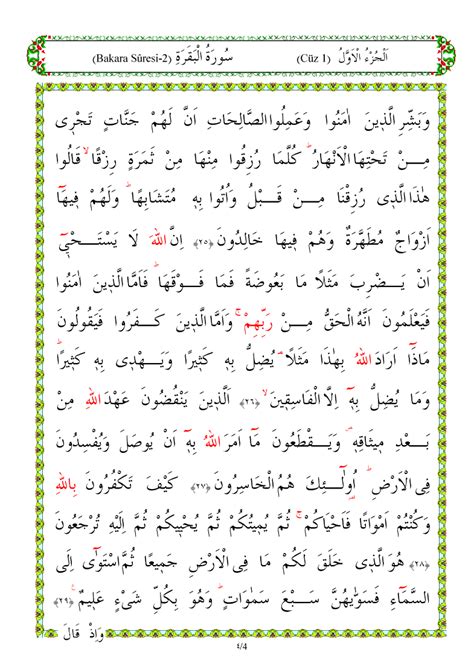 اَلْجُزْءُ الْاَوَّلُ (Cüz 1) سُورَةُ الْبَقَرَةِ (Bakara Sûresi-2)
وَبَشِّرِ الَّذٖينَ اٰمَنُوا وَعَمِلُوا الصَّالِحَاتِ اَنَّ لَهُمْ جَنَّاتٍ تَجْرٖى
مِـــنْ تَحْتِهَا الْاَنْهَارُ ۜ كُلَّمَا رُزِقُوا مِنْهَا مِنْ ثَمَرَةٍ رِزْقًا ۙ قَالُوا
هٰذَا الَّذٖى رُزِقْنَا مِـــنْ قَـــبْلُ وَاُتُوا بِهٖ مُتَشَابِهًا ۜ وَلَهُمْ فٖيهَٓا
اَزْوَاجٌ مُطَهَّرَةٌ وَهُمْ فٖيهَا خَالِدُونَ ﴿٢٥﴾ اِنَّ اللّٰهَ لَا يَسْتَـــحْيٖٓ
اَنْ يَـــضْرِبَ مَثَلًا مَا بَعُوضَةً فَمَا فَـــوْقَهَا ۜ فَاَمَّا الَّذٖينَ اٰمَنُوا
فَيَعْلَمُونَ اَنَّهُ الْحَقُّ مِـــنْ رَبِّهِمْ ۚ وَاَمَّا الَّذٖينَ كَـــفَرُوا فَيَقُولُونَ
مَاذَٓا اَرَادَ اللّٰهُ بِهٰذَا مَثَلًا ۘ يُضِلُّ بِهٖ كَثٖيرًا وَيَـــهْدٖى بِهٖ كَثٖيرًا ۜ
وَمَا يُضِلُّ بِهٖٓ اِلَّا الْفَاسِقٖينَ ۙ ﴿٢٦﴾ اَلَّذٖينَ يَنْقُضُونَ عَهْدَ اللّٰهِ مِنْ
بَـــعْدِ مٖيثَاقِهٖ ۖ وَيَـــقْطَعُونَ مَٓا اَمَرَ اللّٰهُ بِهٖٓ اَنْ يُوصَلَ وَيُفْسِدُونَ
فِى الْاَرْضِ ۜ اُولٰٓـــئِكَ هُمُ الْخَاسِرُونَ ﴿٢٧﴾ كَيْفَ تَكْفُرُونَ بِاللّٰهِ
وَكُنْتُمْ اَمْوَاتًا فَاَحْيَاكُمْ ۚ ثُمَّ يُمٖيتُكُمْ ثُمَّ يُحْيٖيكُمْ ثُمَّ اِلَيْهِ تُرْجَعُونَ
﴿٢٨﴾ هُوَ الَّذٖى خَلَقَ لَكُمْ مَا فِى الْاَرْضِ جَمٖيعًا ثُمَّ اسْتَوٰٓى اِلَى
السَّمَٓاءِ فَسَوّٰيهُنَّ سَـــبْعَ سَمٰوَاتٍ ۜ وَهُوَ بِكُلِّ شَىْءٍ عَلٖيمٌ ۟ ﴿٢٩﴾
وَاِذْ قَالَ
٤/4